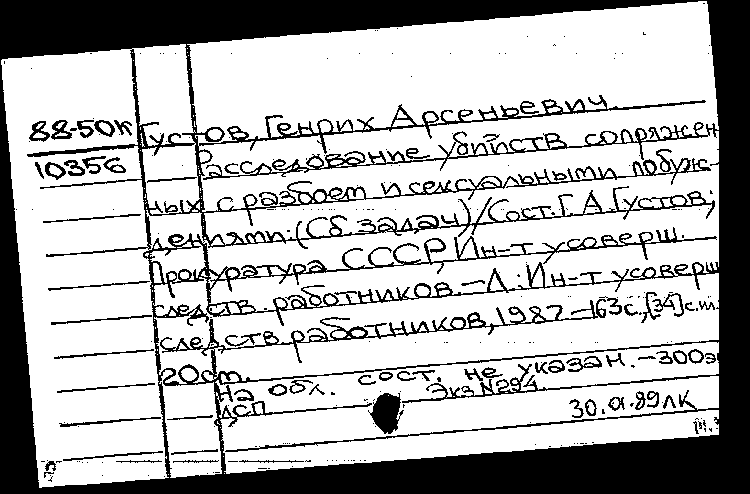 88-50К Густов, Генрих Арсеньевич.
10356 Расследование убийств сопряжен
ных с разбоем и сексуальными побуж-
дениями: (Сб. задач) / Сост. Г. А. Густов;
Прокуратура СССР, Ин-т усоверш.
следств. работников. – Л.: Ин-т усоверш
следств. работников, 1987 – 163 с., [34] с. ил.
20 см.
На обл. сост. не указан. – 300 э
ДСП Экз N 294.
30.01.89 ЛК